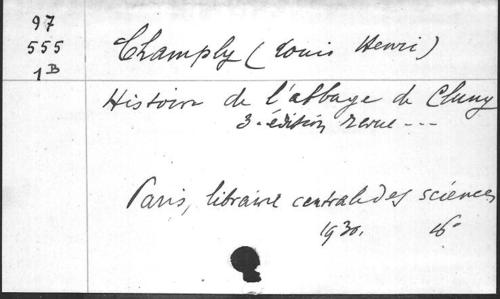 97
555
1B
Champly (Louis Henri)
Histoire de l'abbaye de Cluny
3e edition revue ---
Paris, librairie centrale des sciences
1930. 16°